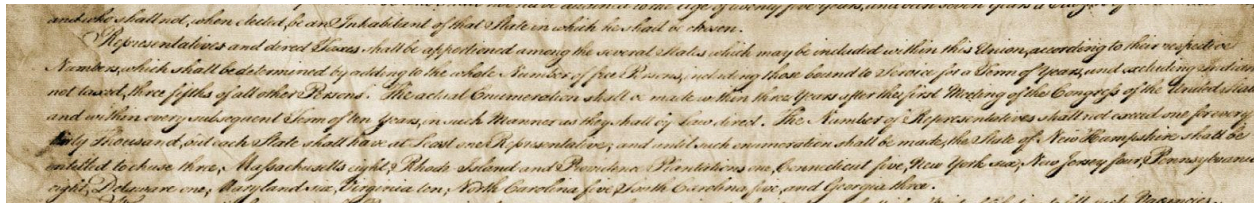 not be attained to the Age of twenty five Years, and been seven Years a Citizen of
and who shall not, when elected, be an Inhabitant of that State in which he shall be chosen.
Representatives and direct Taxes shall be apportioned among the several States which may be included within this Union, according to their respective
Numbers, which shall be determined by adding to the whole Number of free Persons, including those bound to Service for a Term of Years, and excluding Indians
not taxed, three fifths of all other Persons. The actual Enumeration shall be made within three Years after the first Meeting of the Congress of the United States
and within every subsequent Term of ten Years, in such Manner as they shall by Law direct. The Number of Representatives shall not exceed one for every
thirty Thousand, but each State shall have at Least one Representative; and until such enumeration shall be made, the State of New Hampshire shall be
entitled to chuse three, Massachusetts eight, Rhode Island and Providence Plantations one, Connecticut five, New York six, New Jersey four, Pennsylvania
eight, Delaware one, Maryland six, Virginia ten, North Carolina five, South Carolina five, and Georgia three.
fill such Vacancies.